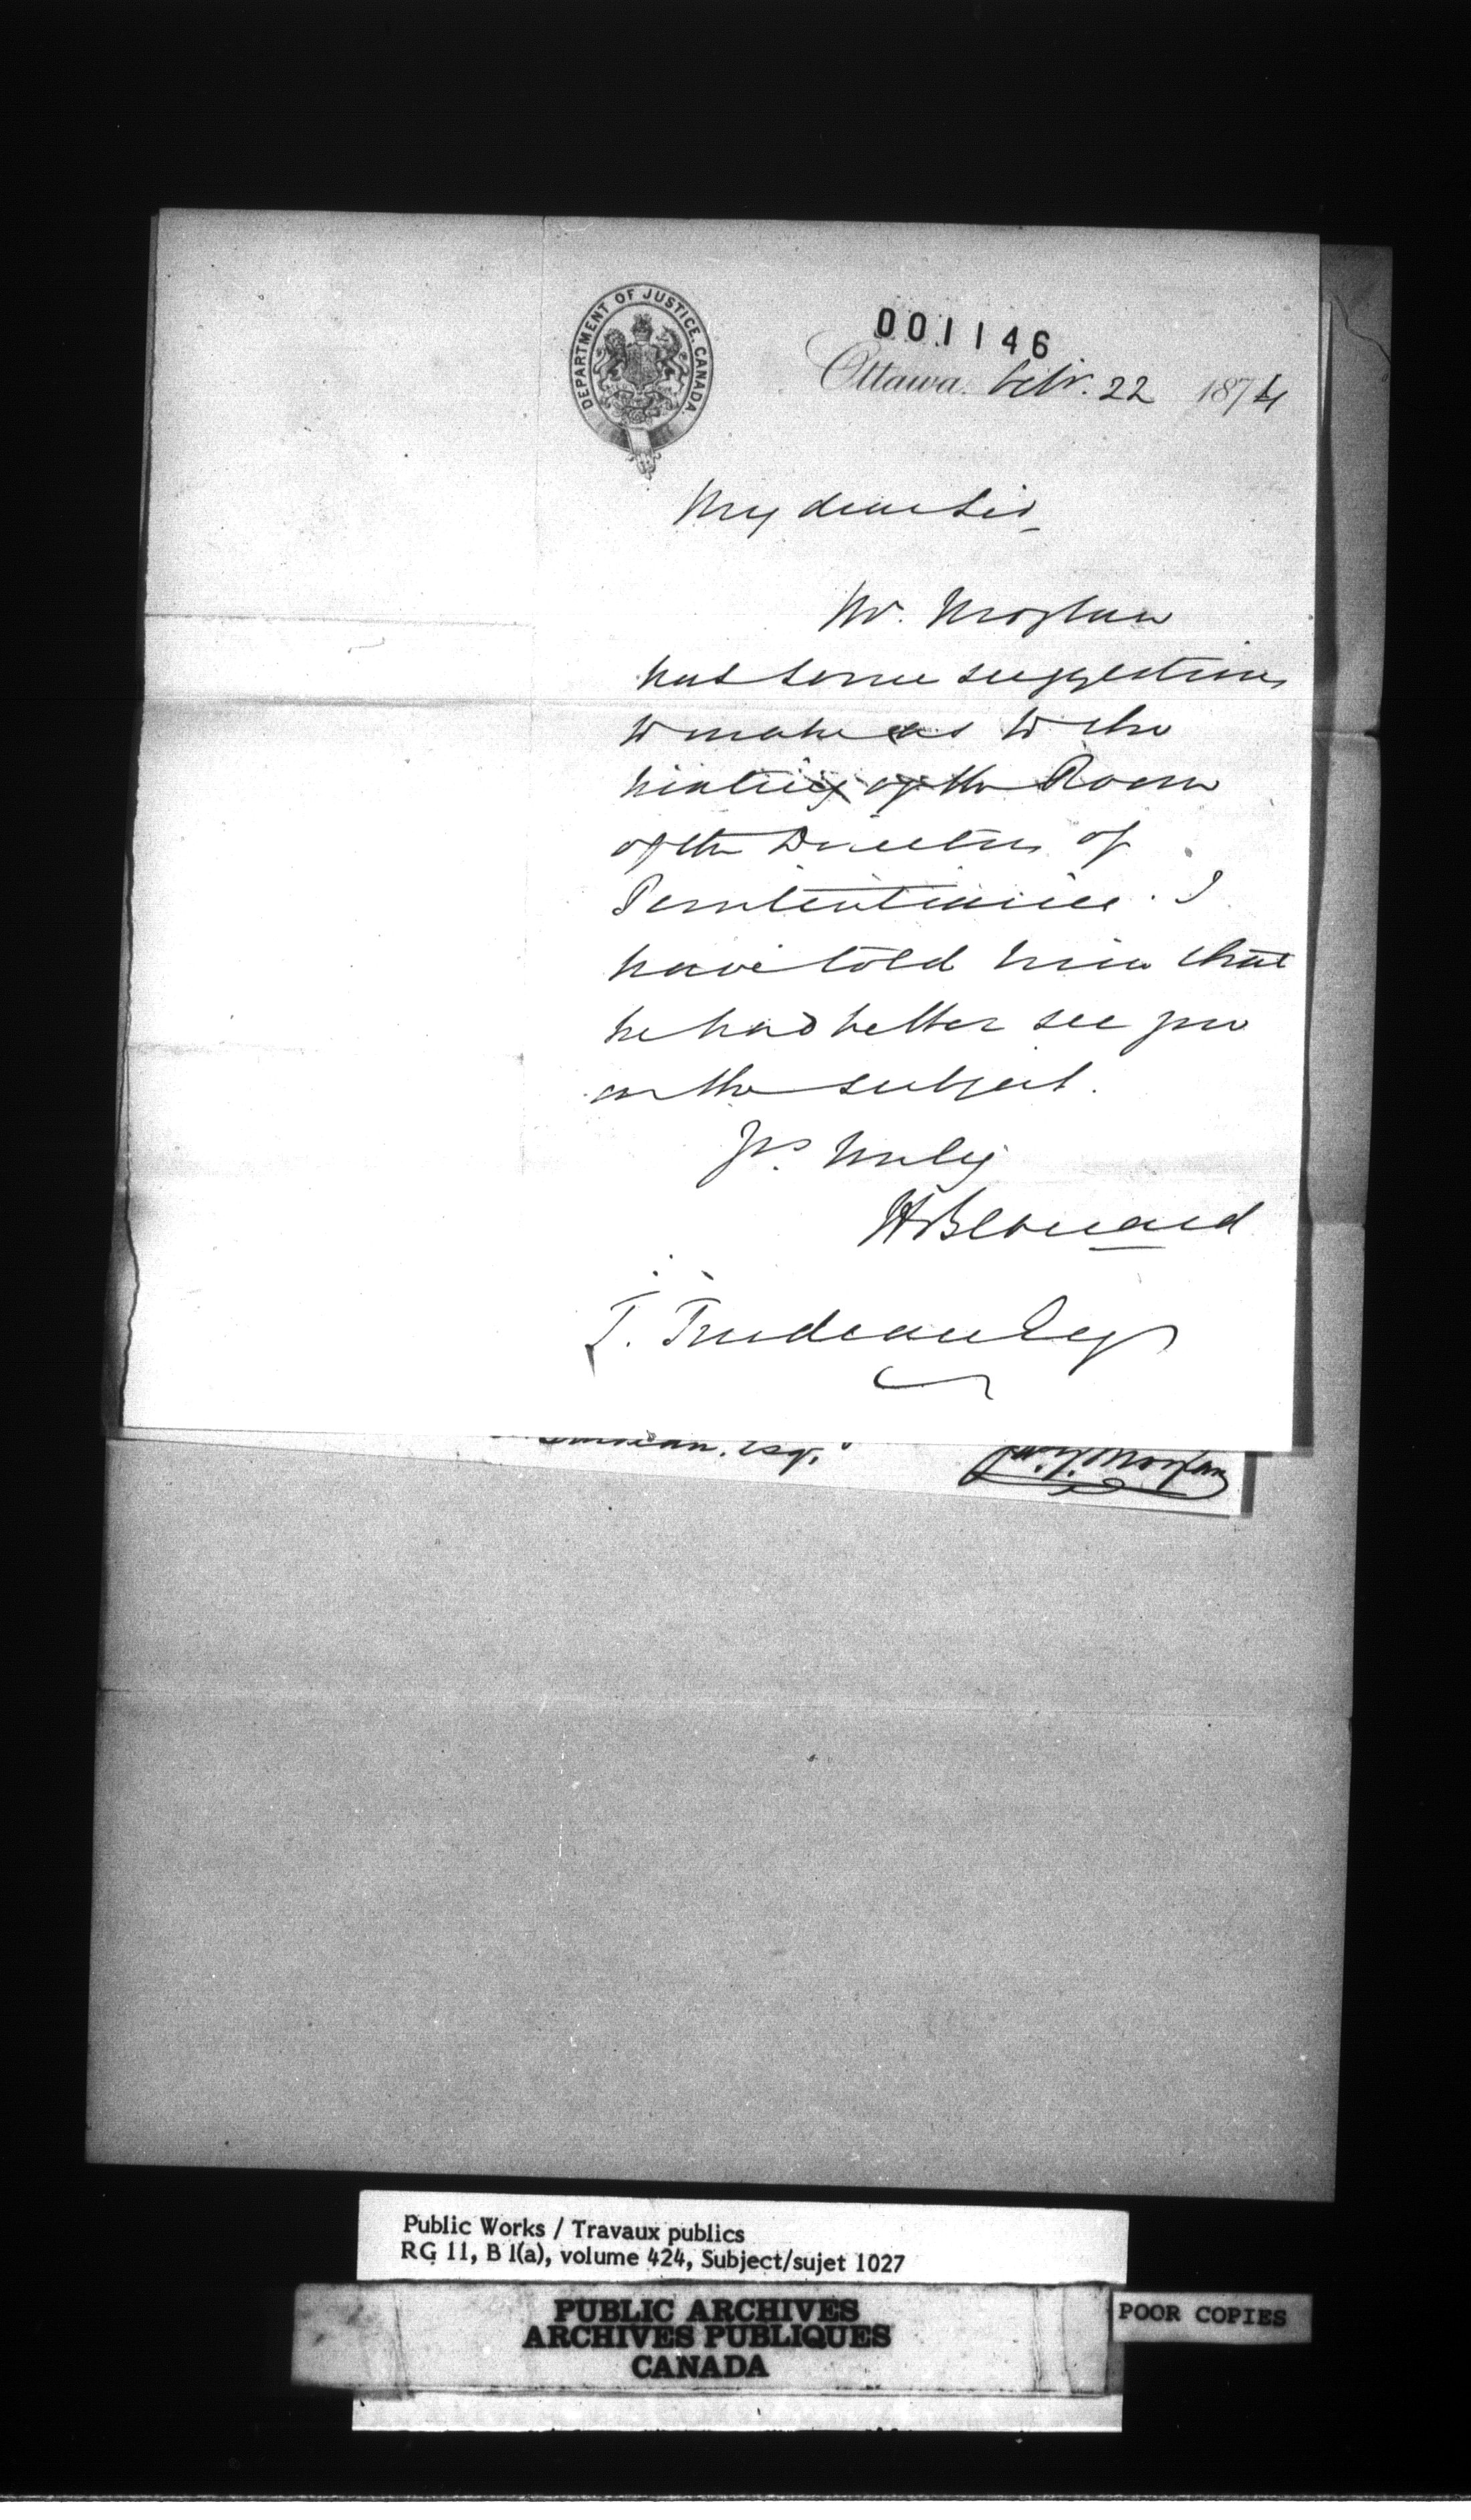 DEPARTMENT OF JUSTICE, CANADA
001146
Ottawa. Febr. 22 1874
My dear Sir
Mr. Morgan
has some suggestions
to make as to the
heating of the Room
of the Directors of
Penitentiaries. I
have told him that
he had better see you
on the subject.
Yrs. truly
H Bernard
T. Trudeau Esq
Trudeau. Esq.
Morgan
Public Works / Travaux publics
RG 11, B 1(a), volume 424, Subject/sujet 1027
PUBLIC ARCHIVES
ARCHIVES PUBLIQUES
CANADA
POOR COPIES